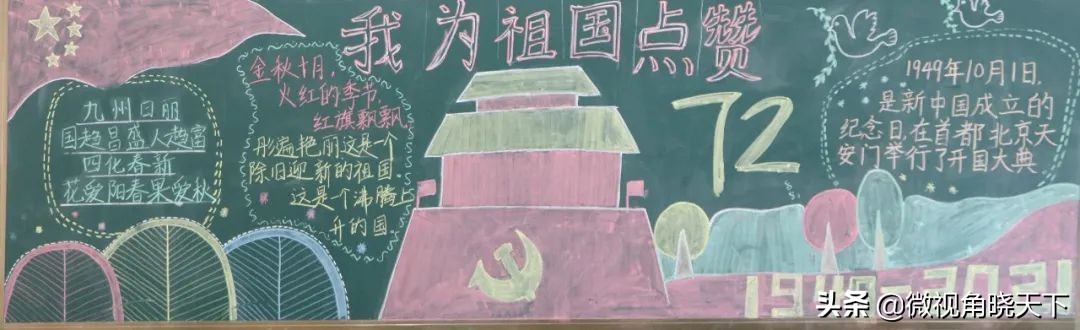 我为祖国点赞
九州日丽
国趋昌盛人趋富
四化春新
花爱阳春果爱秋
金秋十月,
火红的季节,
红旗飘飘,
彤遍艳丽这是一个
除旧迎新的祖国.
这是个沸腾上
升的国.
72
1949年10月1日,
是新中国成立的
纪念日,在首都北京天
安门举行了开国大典
1949-2021
头条 @微视角晓天下